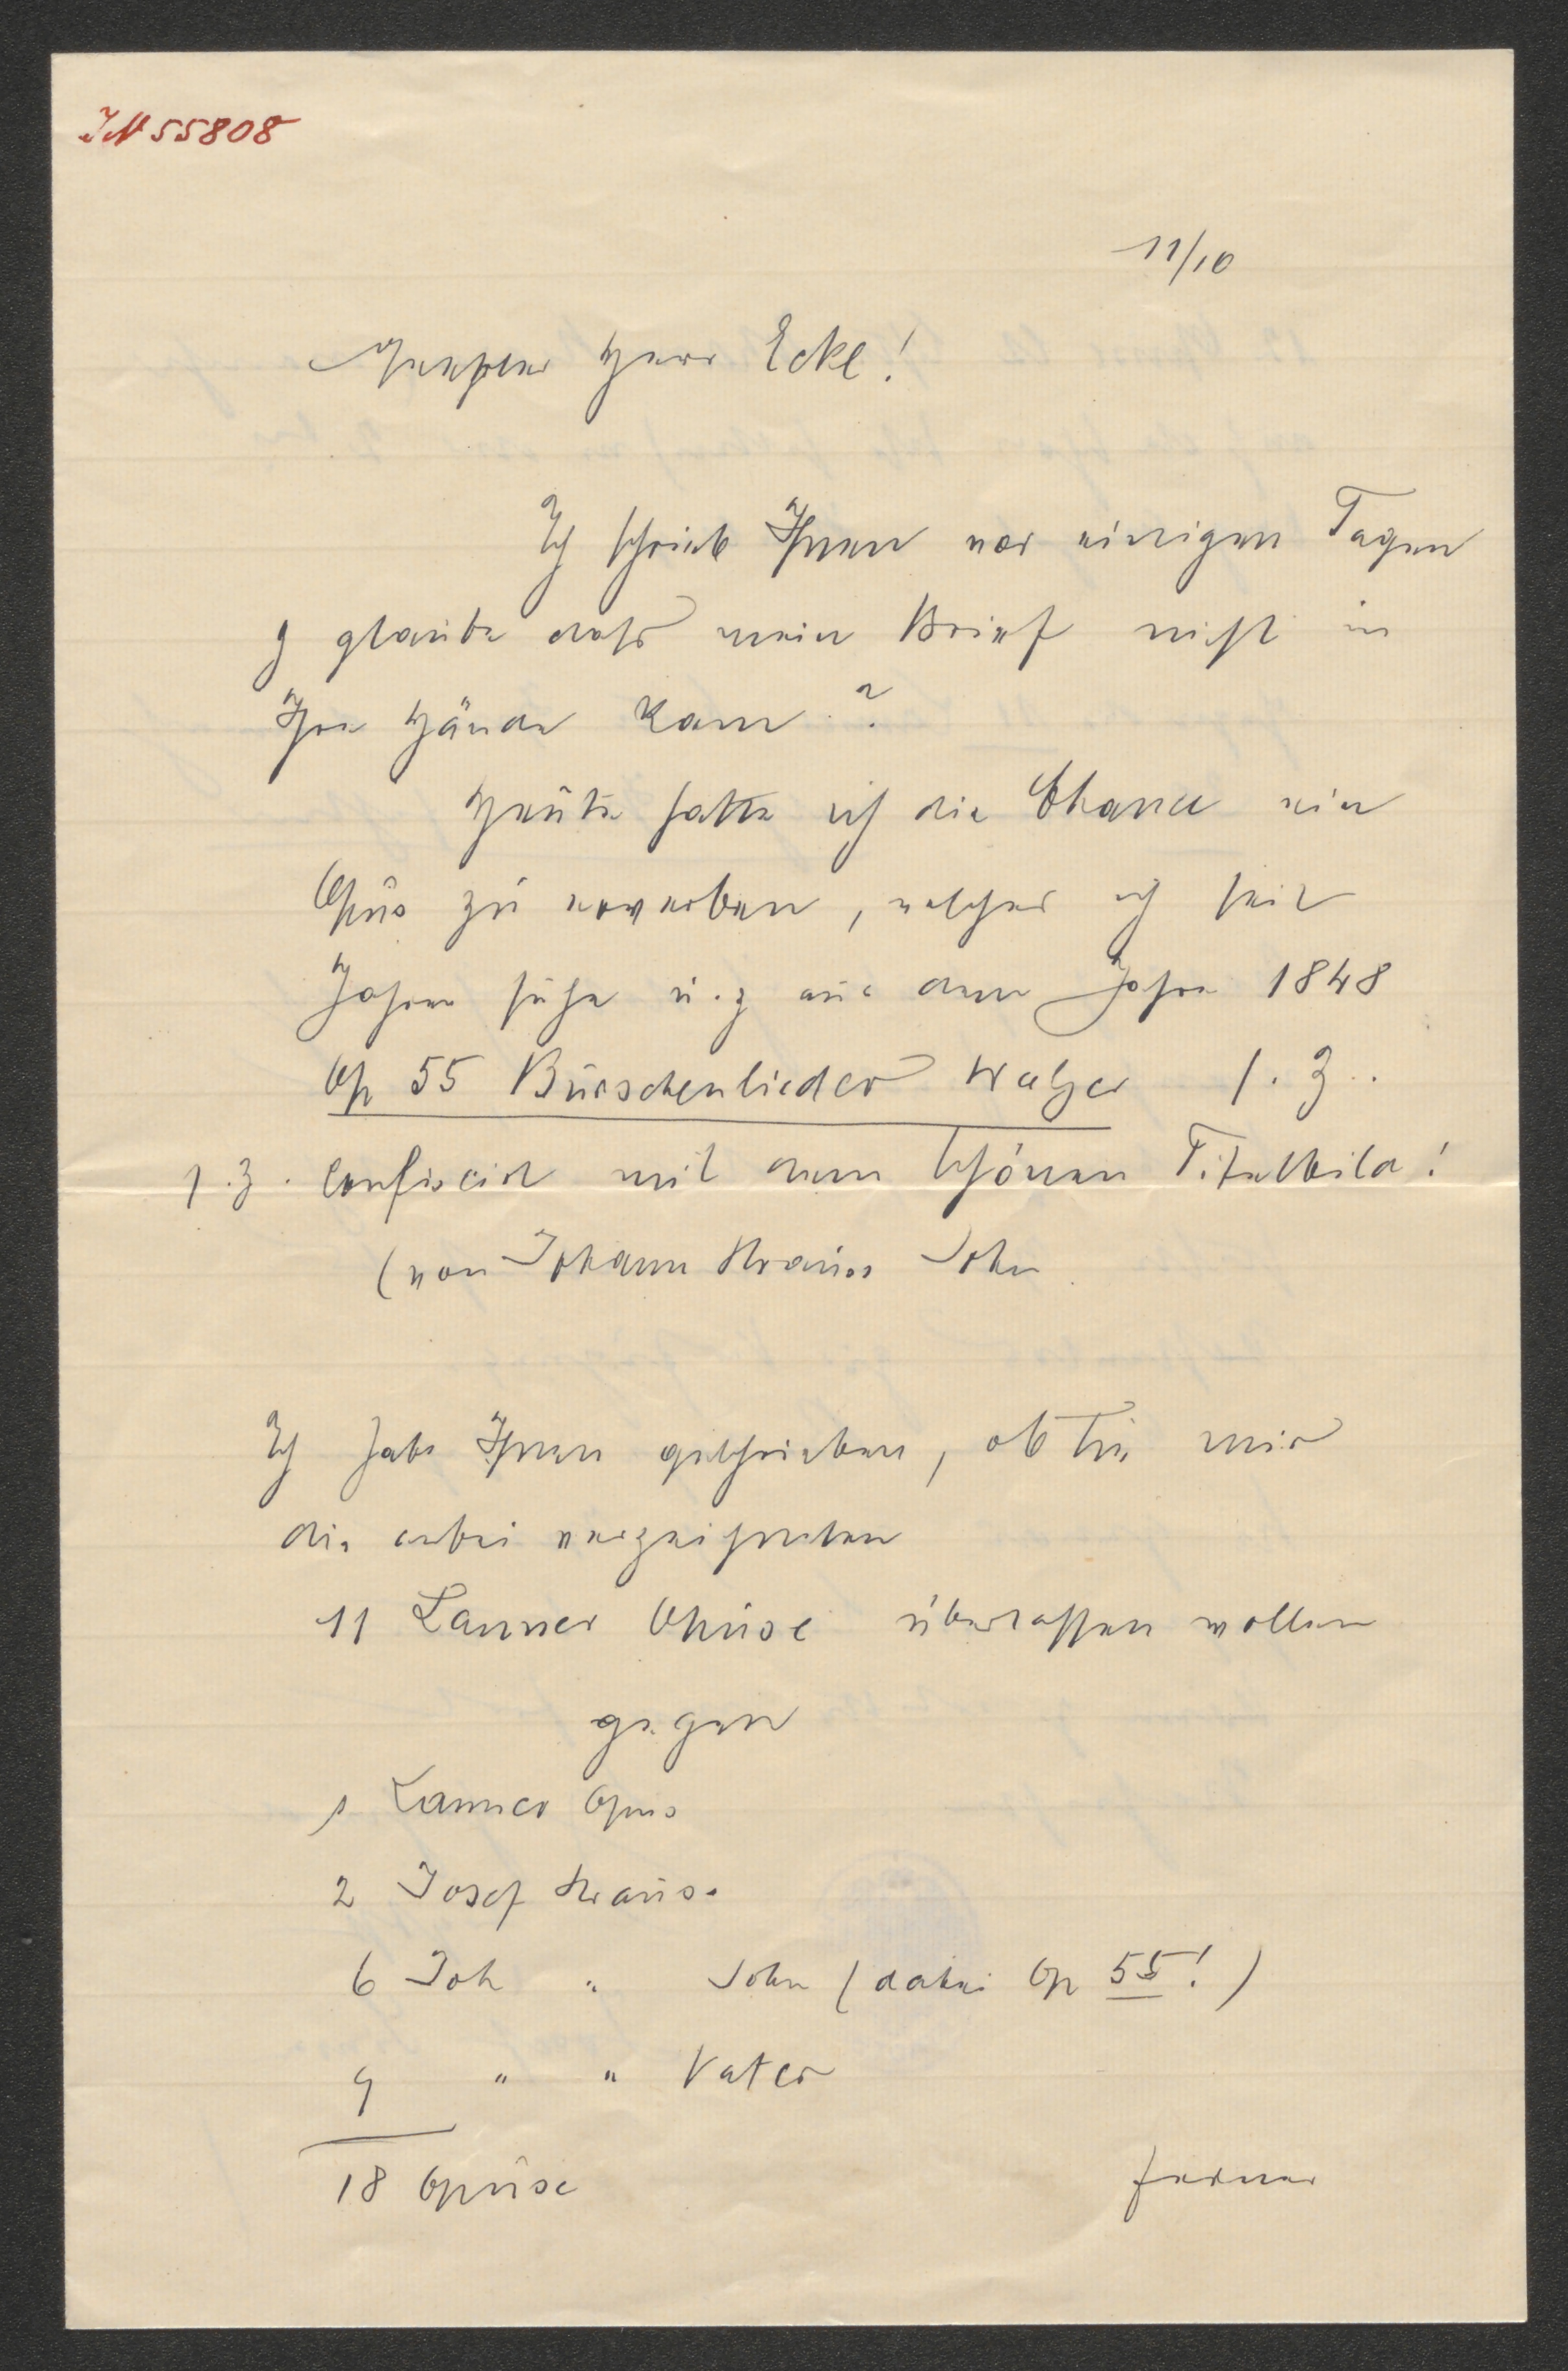 IN 55808
11/10
Geehrter Herr Eckl!
Ich schrieb Ihnen vor einigen Tagen
glaube dass mein Brief nicht in
Ihre Hände kam?
Heute hatte ich die Chance ein
Opus zu erwerben, welches ich seit
Jahren suche u. z aus dem Jahre 1848
Op 55 Burschenlieder Walzer 1. Z..
s. Z. confiscirt mit dem schönen Titelbild!
(von Johann Strauss Sohn
Ich habe Ihnen geschrieben, ob Sie mir
die anbei verzeichneten
11 Lanner Opuse überlassen wollen
gegen
1 Lanner Opus
2 Josef Strauss
6 Joh " Sohn (dabei Op 55!)
9 " " Vater
18 Opuse
ferner